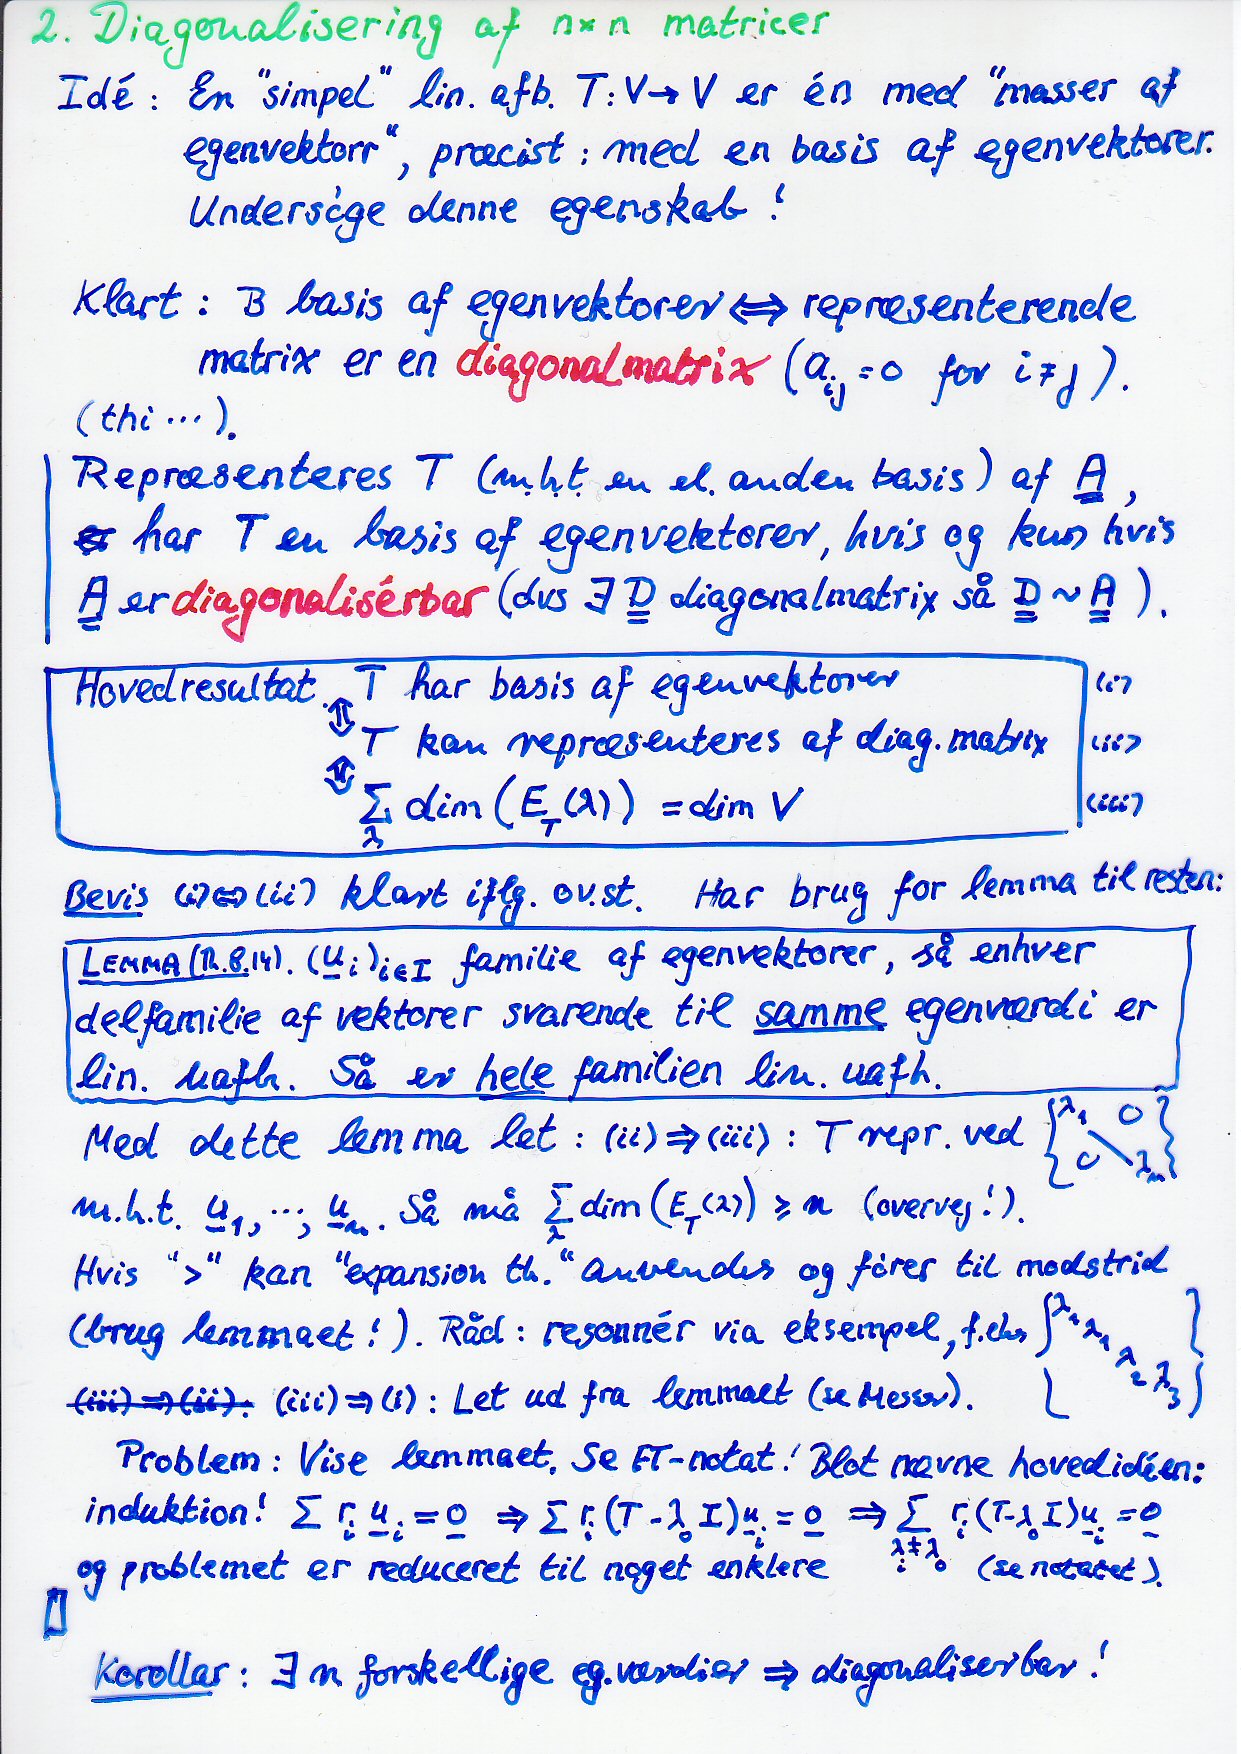 2. Diagonalisering af n×n matricer
Idé: En "simpel" lin. afb. T: V → V er én med "masser af
egenvektorr", præcist: med en basis af egenvektorer.
Undersøge denne egenskab!
Klart: B basis af egenvektorer ⇔ repræsenterende
matrix er en diagonalmatrix (a_ij = 0 for i ≠ j).
(thi ...).
Repræsenteres T (m.h.t. en el. anden basis) af A,
har T en basis af egenvektorer, hvis og kun hvis
A er diagonalisérbar (dvs ∃ D diagonalmatrix så D ~ A).
Hovedresultat. T har basis af egenvektorer (i)
⇕ T kan repræsenteres af diag.matrix (ii)
⇕ Σ_λ dim(E_T(λ)) = dim V (iii)
Bevis (i)⇔(ii) klart iflg. ov.st. Har brug for lemma til resten:
LEMMA (Th.8.14). (u_i)_i∈I familie af egenvektorer, så enhver
delfamilie af vektorer svarende til samme egenværdi er
lin. uafh. Så er hele familien lin. uafh.
Med dette lemma let: (ii) ⇒ (iii): T repr. ved {λ_1 0 0 λ_n}
m.h.t. u_1, ..., u_n. Så må Σ_λ dim(E_T(λ)) ≥ n (overvej!).
Hvis ">" kan "expansion th." anvendes og fører til modstrid
(brug lemmaet!). Råd: resonnér via eksempel, f.eks {λ_1 λ_1 λ_2 λ_3}
(iii) ⇒ (ii): (iii) ⇒ (i): Let ud fra lemmaet (se Messer).
Problem: Vise lemmaet. Se FT-notat! Blot nævne hovedidéen:
induktion! Σ r_i u_i = 0 ⇒ Σ r_i (T - λ_0 I) u_i = 0 ⇒ Σ_λ_i≠λ_0 r_i (T - λ_0 I) u_i = 0
og problemet er reduceret til noget enklere (se notatet).
Korollar: ∃ n forskellige eg.værdier ⇒ diagonaliserbar!